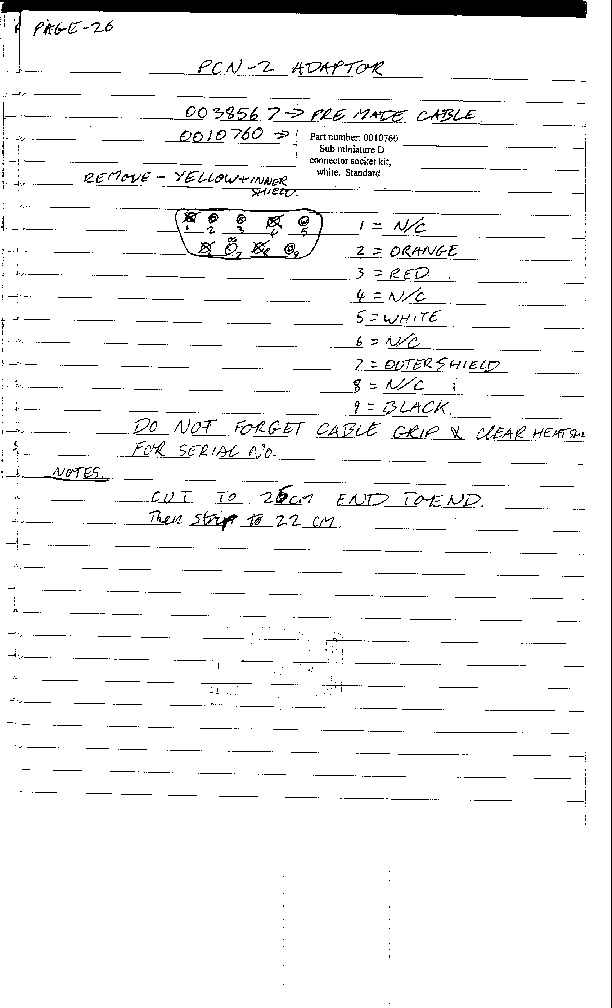 PAGE-26
PCN-2 ADAPTOR
0038567 → PRE MADE CABLE
0010760 →
Part number: 0010760
Sub miniature D
connector socket kit,
white. Standard
REMOVE - YELLOW + INNER
SHIELD.
1 2 3 4 5
6 7 8 9
1 = N/C
2 = ORANGE
3 = RED
4 = N/C
5 = WHITE
6 = N/C
7 = OUTER SHIELD
8 = N/C
9 = BLACK.
DO NOT FORGET CABLE GRIP & CLEAR HEATSH
FOR SERIAL NO.
NOTES
CUT TO 26cm END TO END.
Then strip to 22 cm